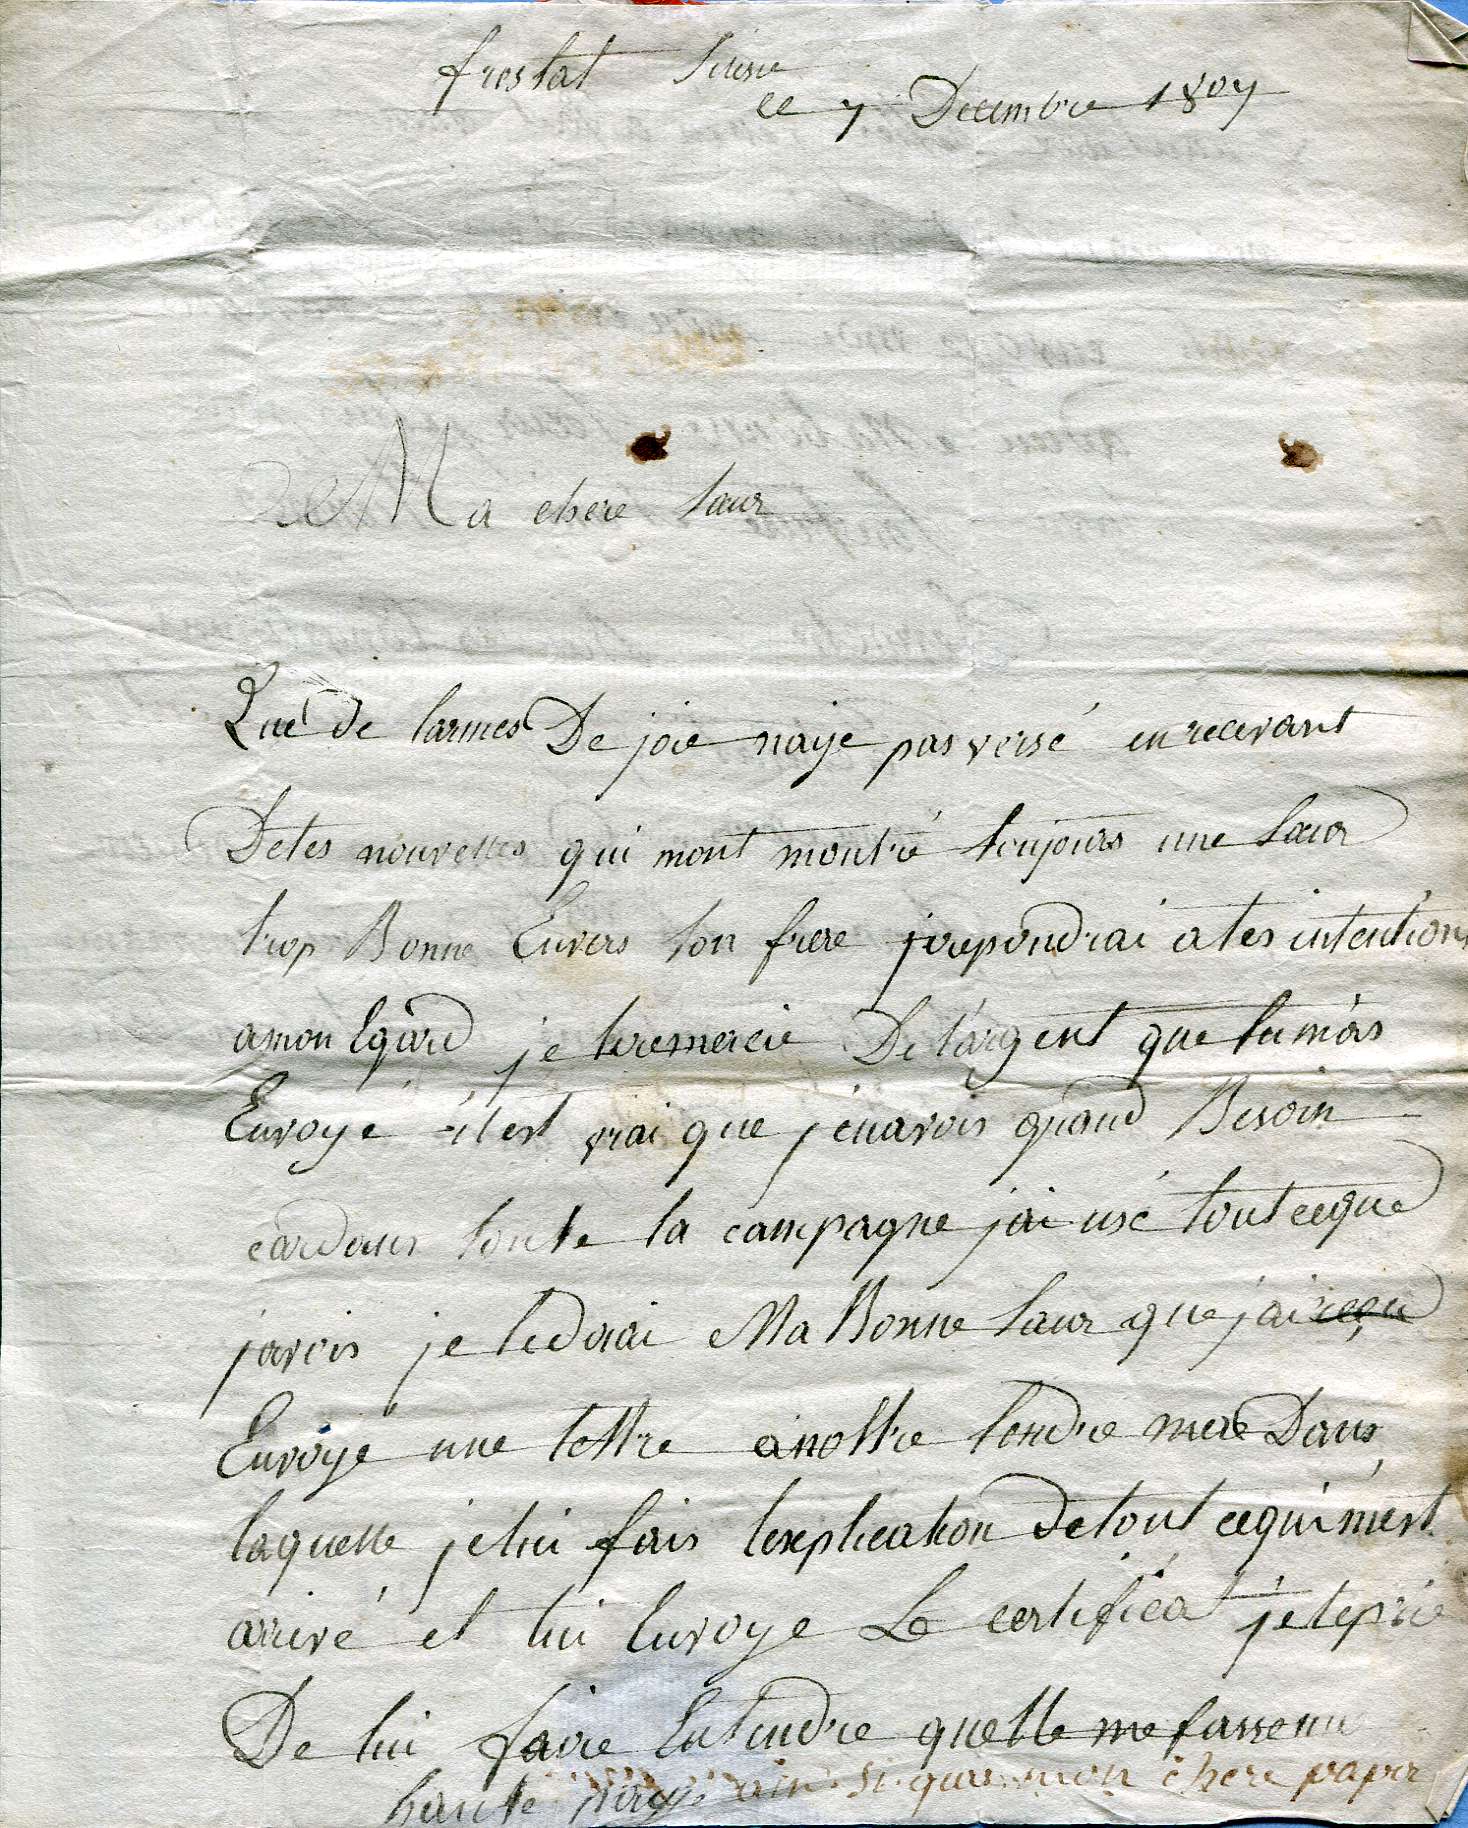 frostat
le 7 Decembre 1807
Ma chere sœur
Que de larmes De joie naije pas versé en recevant
Detes nouvelles qui mont montré toujours une sœur
trop Bonne Envers son frere jerepondrai ates intentions
amon Egard je teremercie De largent que tu mas
Envoyé il est vrai que jenavois grand Besoin
cardans toute la campagne jai usé tout ceque
javois je tedirai Ma Bonne sœur que jai reçu
Envoyé une lettre anottre tendre mere Dans
laquelle jelui fais lexplication detout cequi mest
arrivé et lui Envoye Le certificat jeteprie
De lui faire Entendre quelle me fasse une
haute paye ainsi que mon chere papa